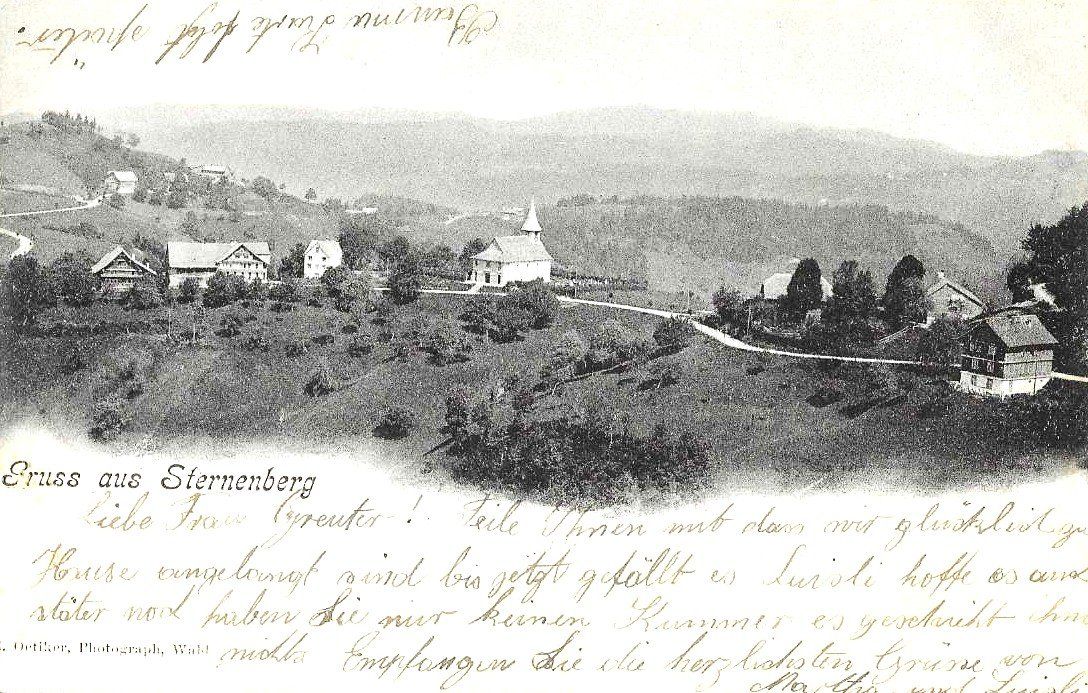 Karte folgt später.
Gruss aus Sternenberg
Liebe Frau Greuter! Teile Ihnen mit dass wir glücklich
Hause angelangt sind bis jetzt gefällt es Luisli hoffe es auch
stäter noch haben Sie nur keinen Kummer es geschieht ihm
Oetiker, Photograph, Wald
nichts Empfangen Sie die herzlichsten Grüsse von
Martha und Luisli